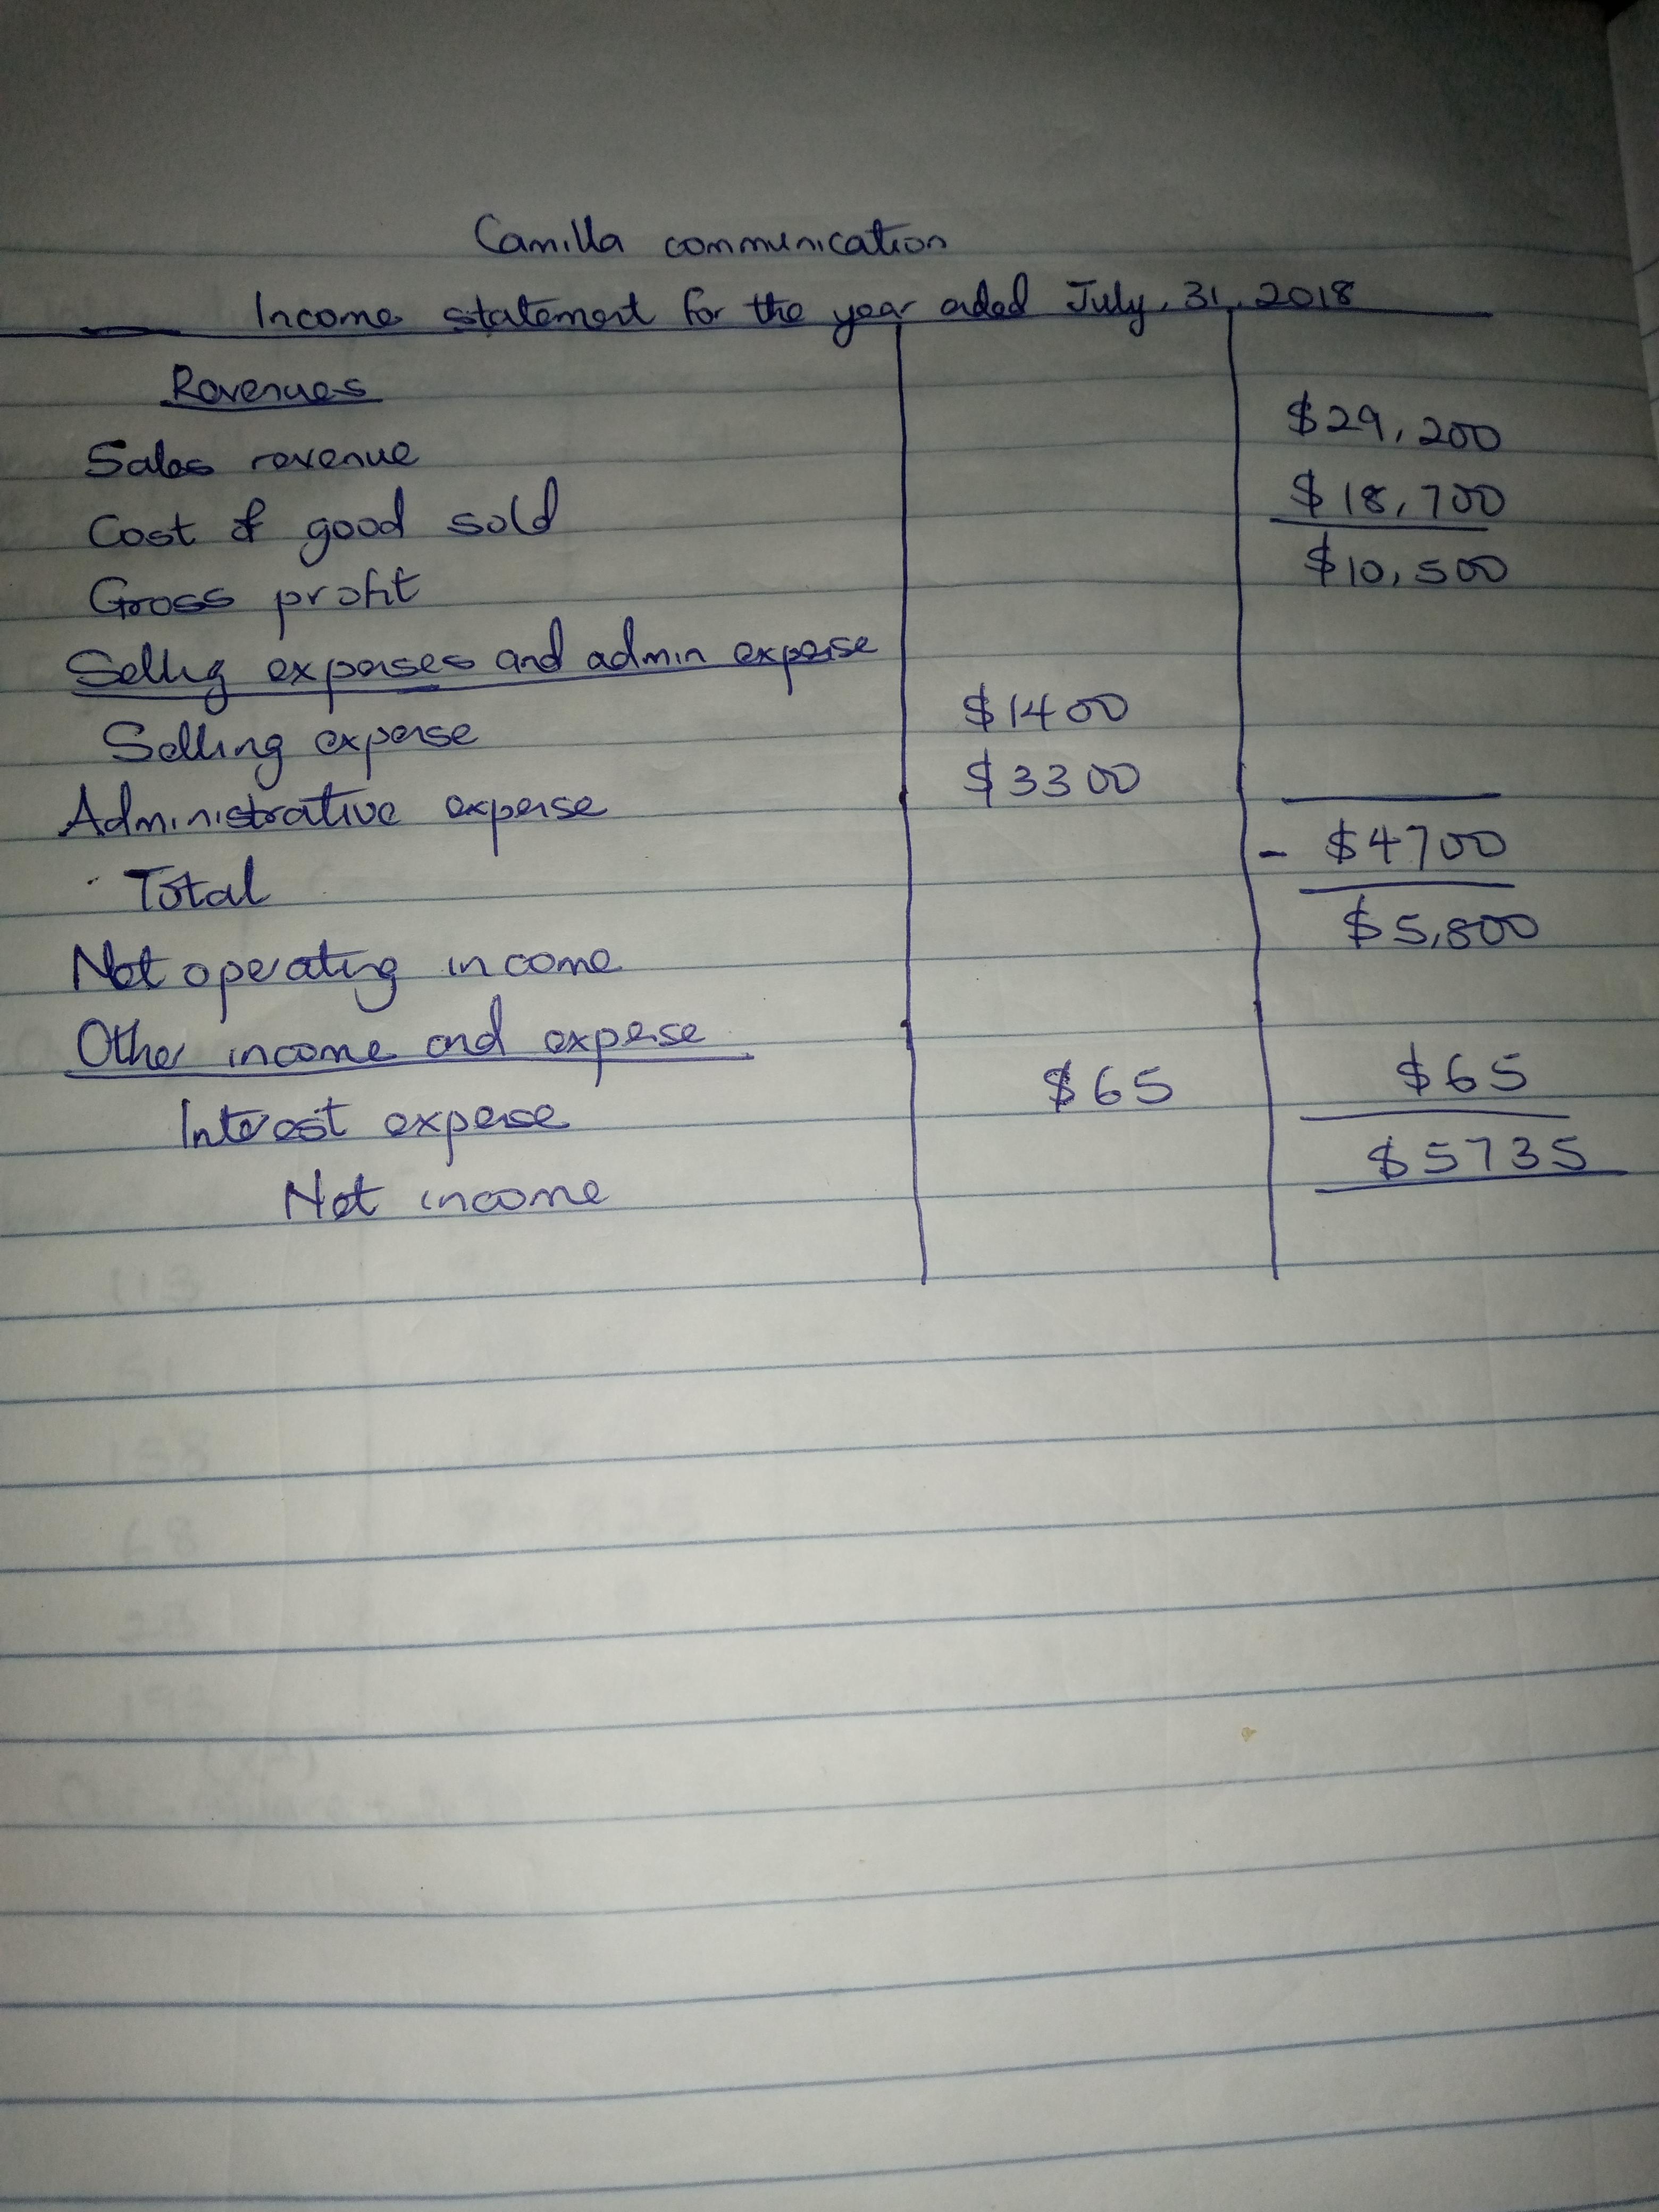 Camilla communication
Income statement for the year ended July, 31, 2018
Revenues
Sales revenue $29,200
Cost of good sold $18,700
Gross profit $10,500
Selling expenses and admin expense
Selling expense $1400
Administrative expense $3300
Total - $4700
Net operating income $5,800
Other income and expense
Interest expense $65 $65
Net income $5735